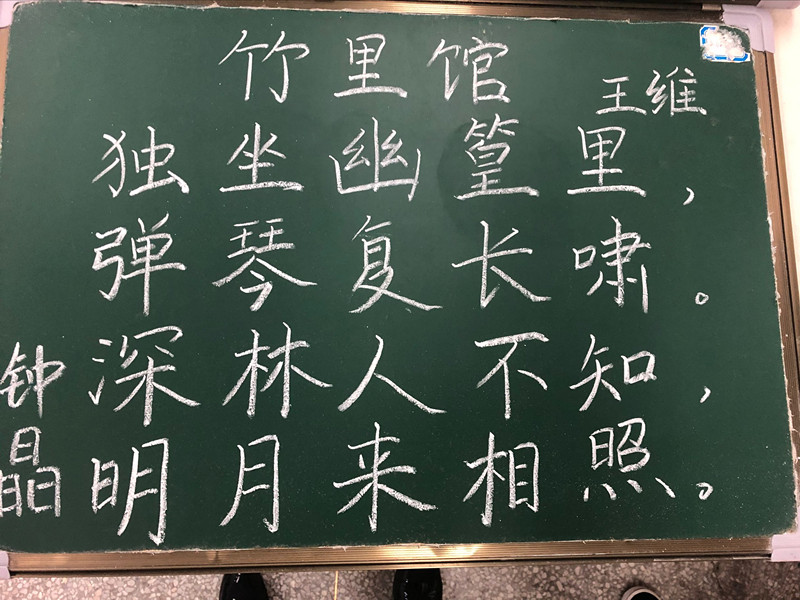 竹里馆
王维
独坐幽篁里,
弹琴复长啸。
深林人不知,
明月来相照。
钟晶